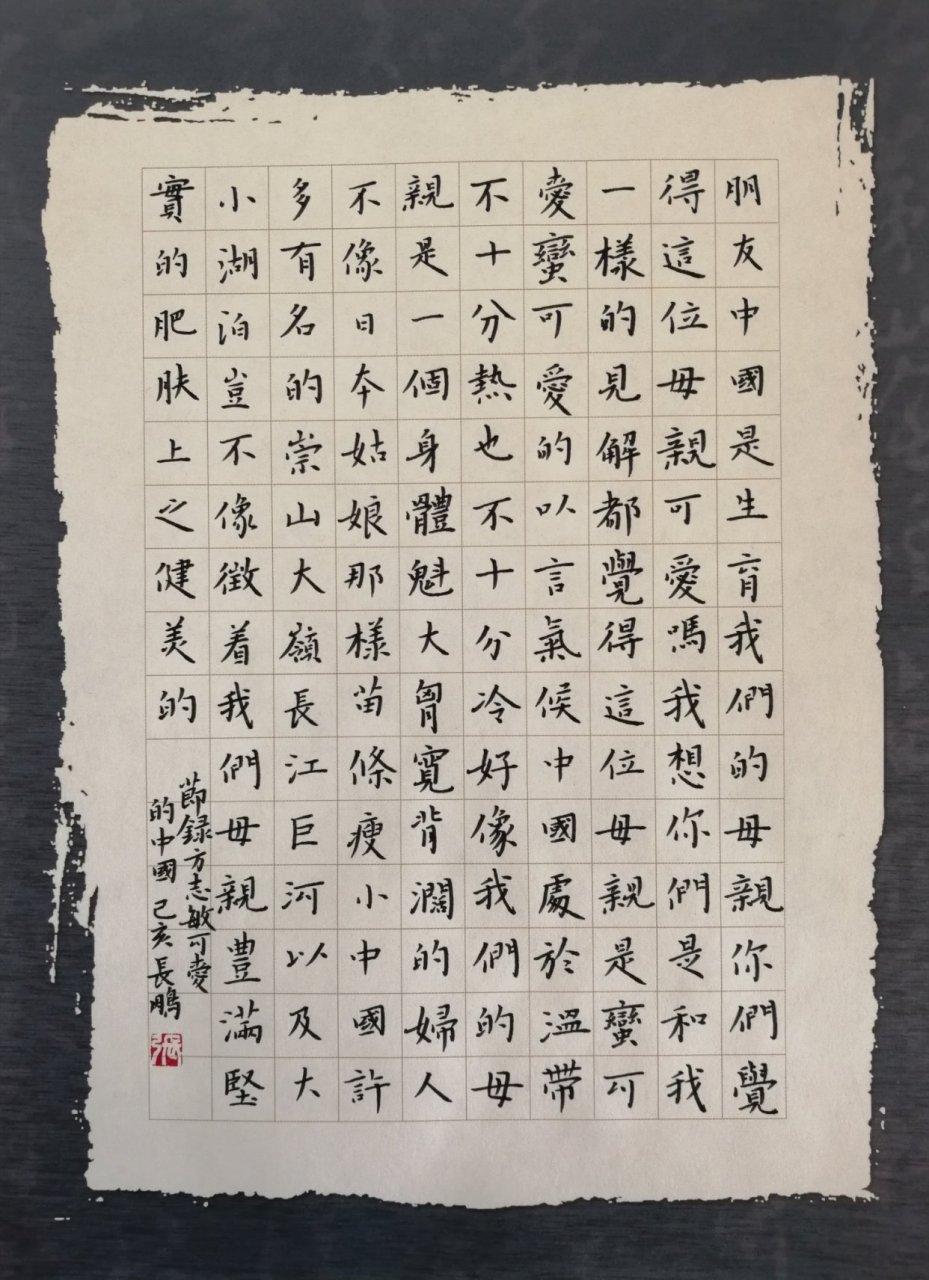 朋友中國是生育我們的母親你們覺
得這位母親可愛嗎我想你們是和我
一樣的見解都覺得這位母親是蠻可
愛蠻可愛的以言氣候中國處於温帶
不十分熱也不十分冷好像我們的母
親是一個身體魁大胷寬背濶的婦人
不像日本姑娘那樣苗條瘦小中國許
多有名的崇山大嶺長江巨河以及大
小湖泊豈不像徵着我們母親豊滿堅
實的肥肤上之健美的
節録方志敏可愛
的中國 己亥 長鵬
張